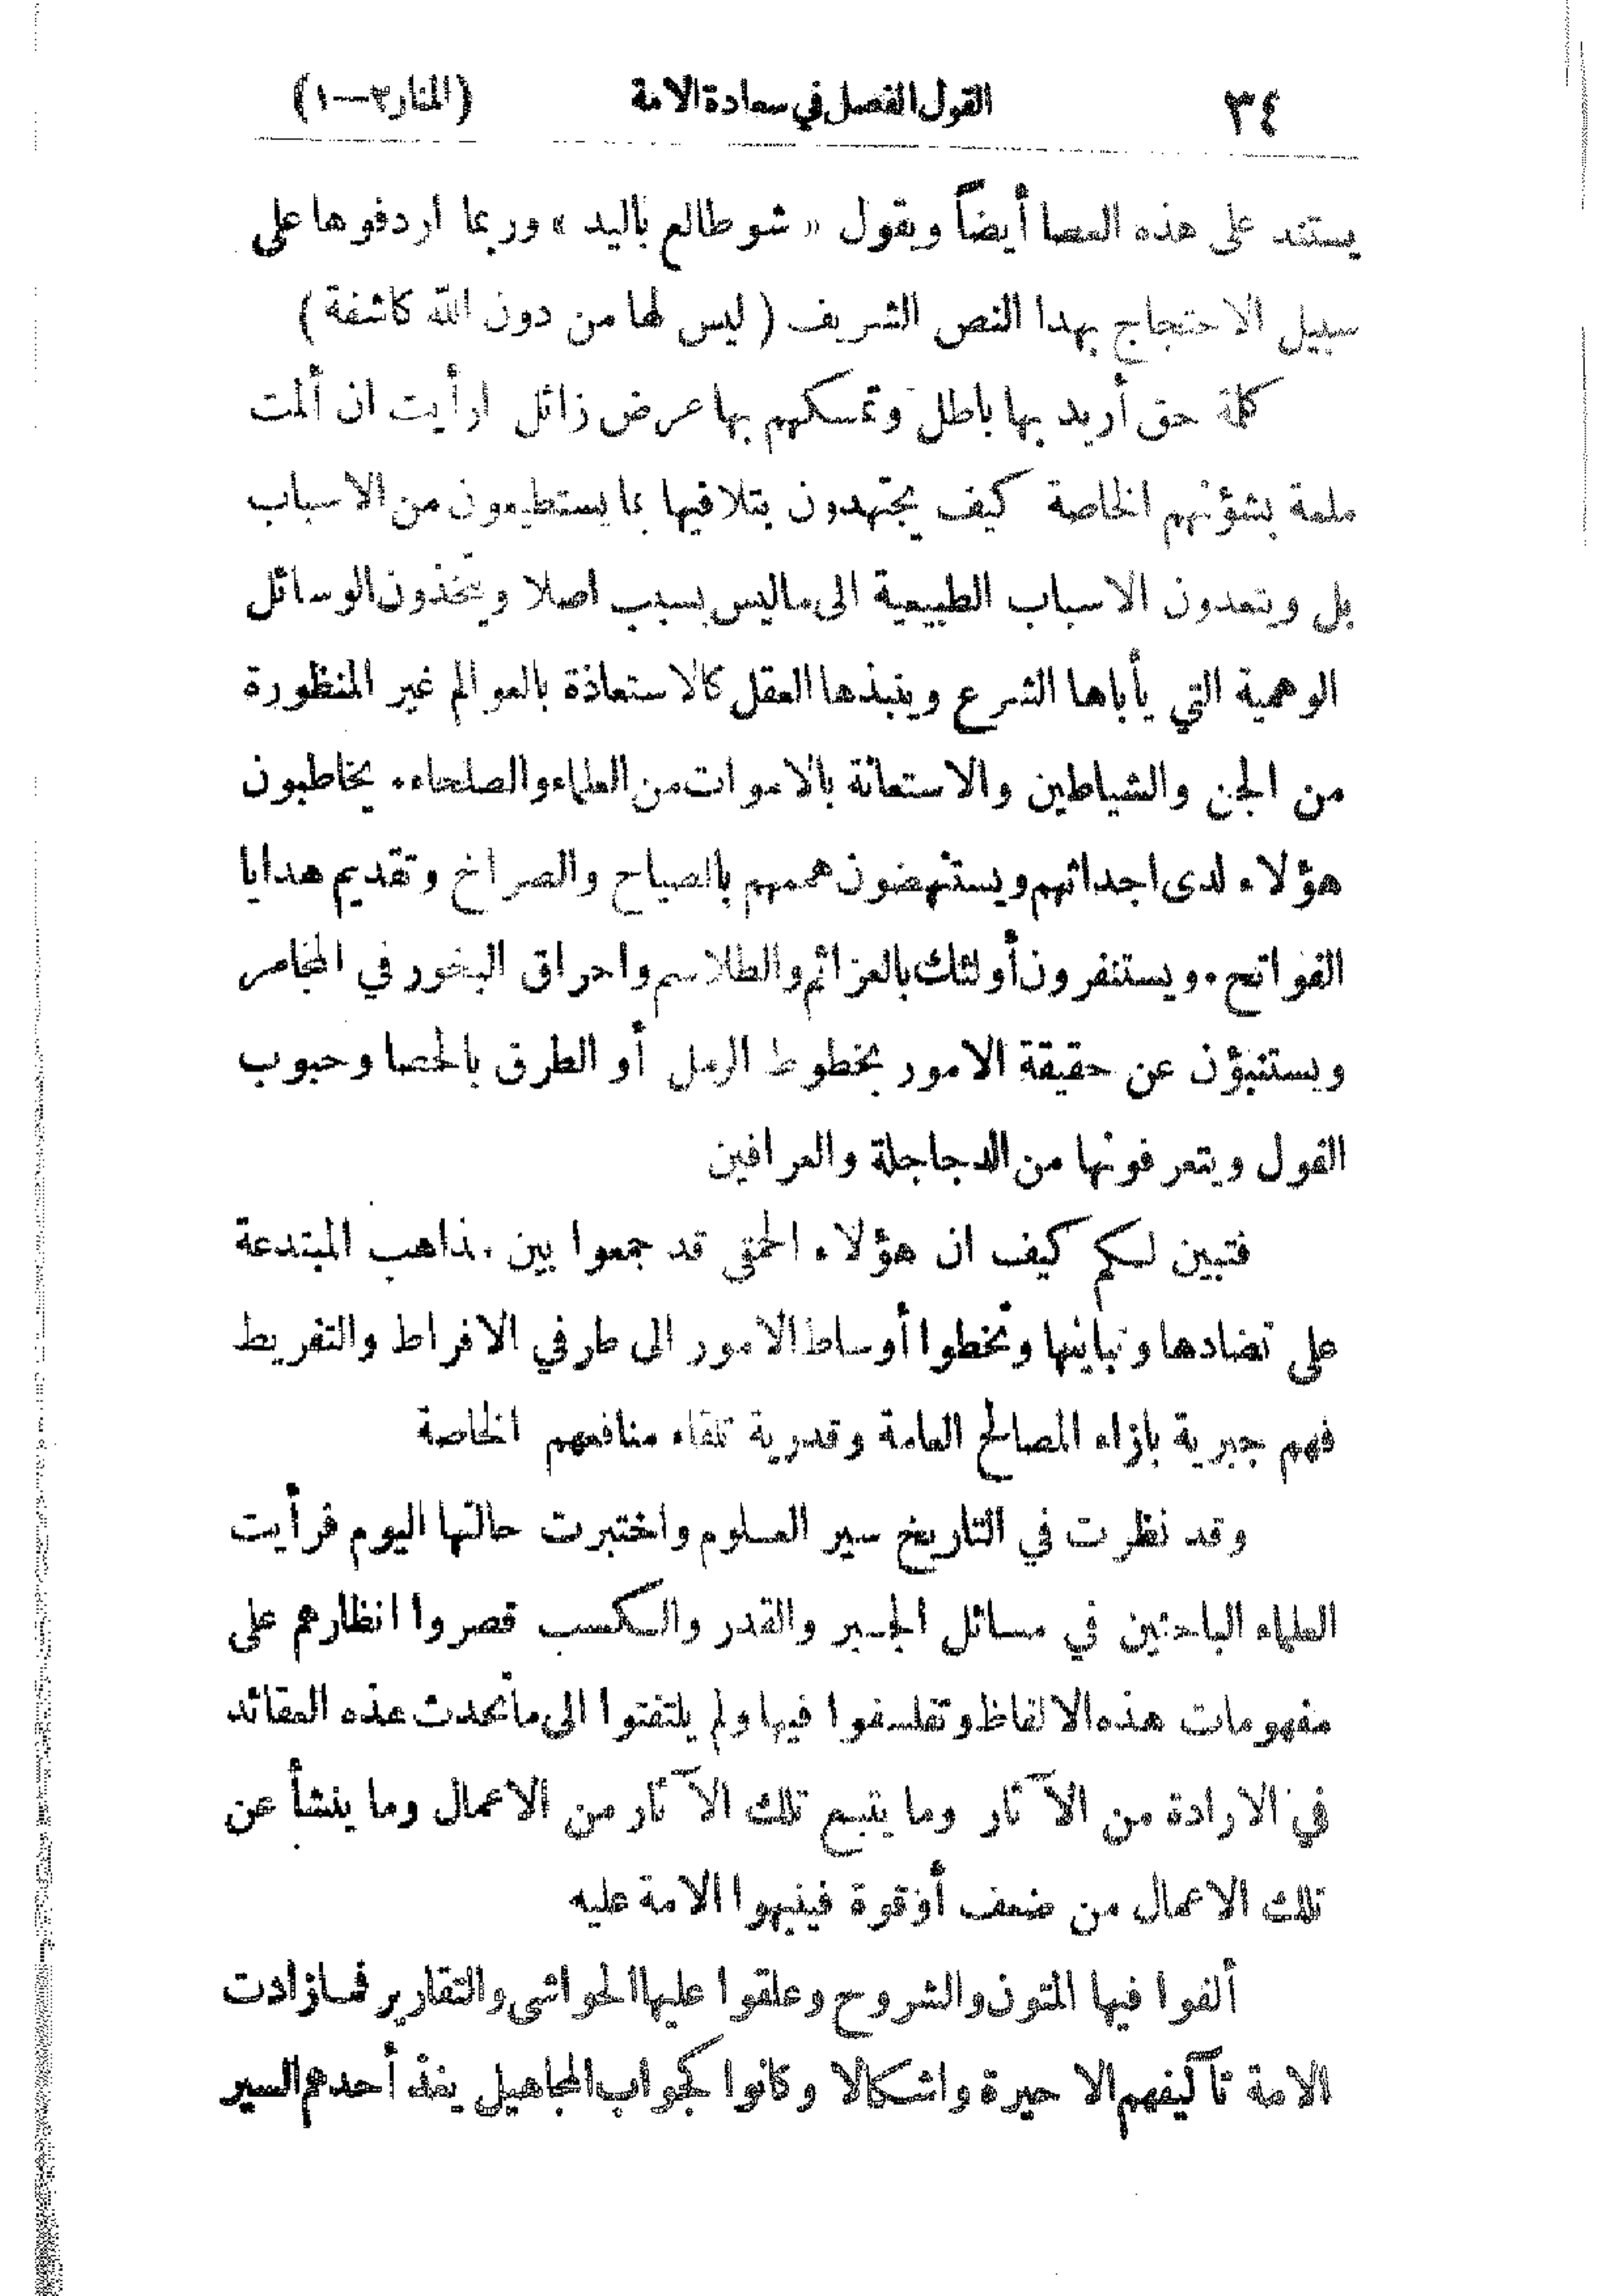 ٣٤ القول الفصل في سعادة الامة (المنار٣—١)
يستند على هذه العصا أيضاً ويقول « شو طالع باليد » وربما اردفوها على
سبيل الاحتجاج بهدا النص الشريف ( ليس لها من دون الله كاشفة )
كلمة حق أريد بها باطل وتمسكهم بها عرض زائل ارأيت ان ألمت
ملمة بشؤنهم الخاصة كيف يجتهدون بتلافيها بما يستطيعون من الاسباب
بل ويتعدون الاسباب الطبيعية الى ماليس بسبب اصلا ويتخذون الوسائل
الوهمية التي يأباها الشرع وينبذها العقل كالاستعاذة بالعوالم غير المنظورة
من الجن والشياطين والاستعانة بالاموات من العلماء والصلحاء. يخاطبون
هؤلاء لدى اجداثهم ويستنهضون هممهم بالصياح والصراخ وتقديم هدايا
الفواتح. ويستنفرون أولئك بالعزائم والطلاسم واحراق البخور في المجامر
ويستنبؤن عن حقيقة الامور بخطوط الرمل أو الطرق بالحصا وحبوب
الفول ويتعرفونها من الدجاجلة والعرافين
فتبين لكم كيف ان هؤلاء الحمقى قد جمعوا بين مذاهب المبتدعة
على تضادها وتباينها وتخطوا أوساط الامور الى طرفي الافراط والتفريط
فهم جبرية بازاء المصالح العامة وقدرية تلقاء منافعهم الخاصة
وقد نظرت في التاريخ سير العلوم واختبرت حالتها اليوم فرأيت
العلماء الباحثين في مسائل الجبر والقدر والكسب قصروا انظارهم على
مفهومات هذه الالفاظ وتفلسفوا فيها ولم يلتفتوا الى ما تحدث هذه العقائد
في الارادة من الآثار وما يتبع تلك الآثار من الاعمال وما ينشأ عن
تلك الاعمال من ضعف أو قوة فينبهوا الامة عليه
ألفوا فيها المتون والشروح وعلقوا عليها الحواشي والتقارير فما زادت
الامة تآليفهم الا حيرة واشكالا وكانوا كجواب المجاهيل يغذ أحدهم السير